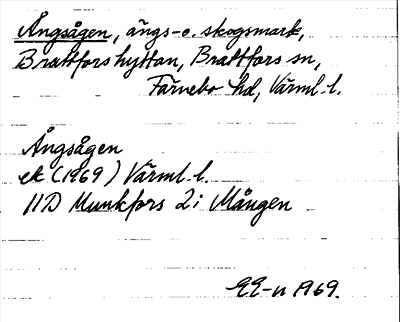 Ångsågen, ängs- o. skogsmark,
Brattforshyttan, Brattfors sn,
Färnebo hd, Värml. l.
Ångsågen
ek (1969) Värml. l.
11D Munkfors 2i Mången
1969.